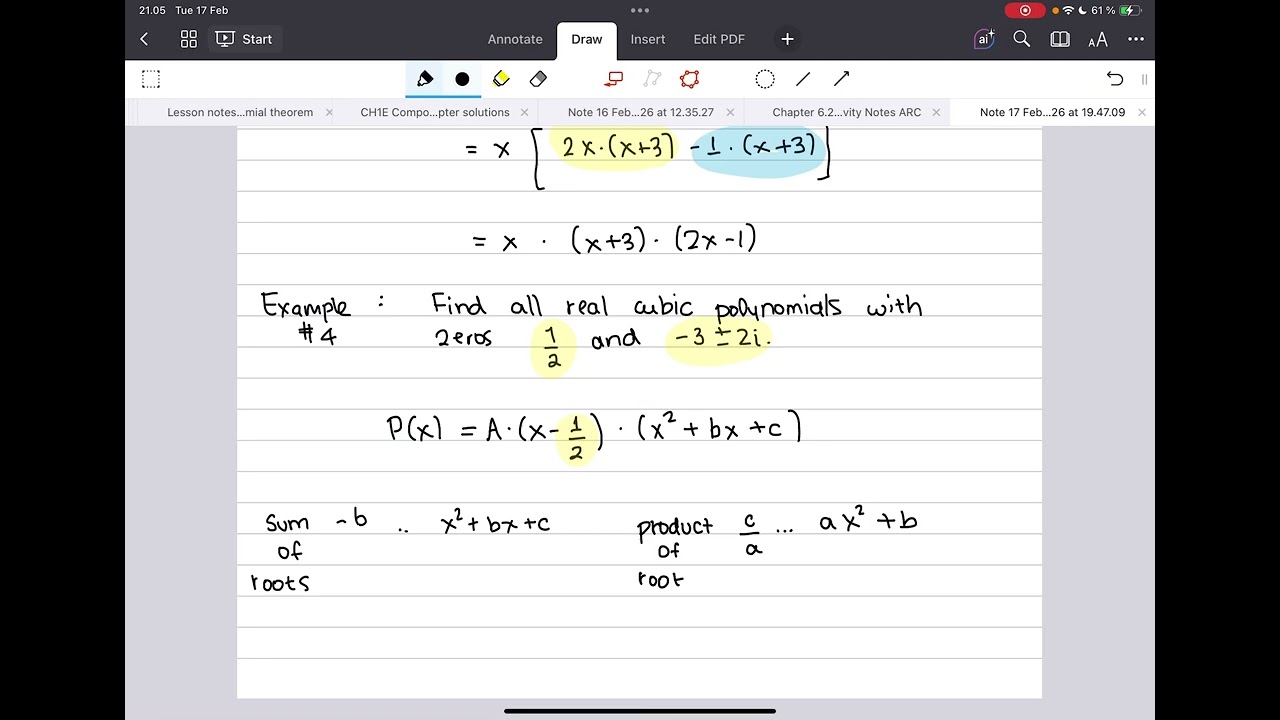 21.05 Tue 17 Feb
61 %
Start
Annotate Draw Insert Edit PDF
ai
AA
Lesson notes...mial theorem
CH1E Compo...pter solutions
Note 16 Feb...26 at 12.35.27
Chapter 6.2...vity Notes ARC
Note 17 Feb...26 at 19.47.09
= x [ 2x·(x+3) - 1·(x+3) ]
= x · (x+3) · (2x-1)
Example #4 : Find all real cubic polynomials with
zeros 1/2 and -3 ± 2i.
P(x) = A·(x - 1/2) · (x² + bx + c)
sum of roots -b .. x² + bx + c
product of root c/a ... ax² + b